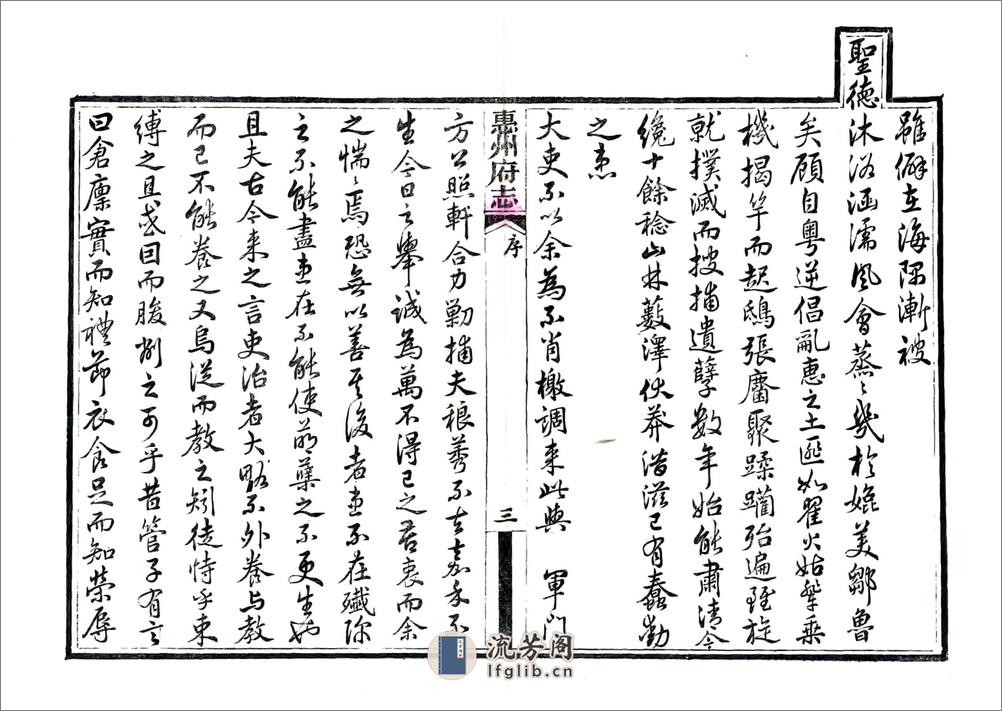 雖僻在海隅漸被
聖德沐浴涵濡風會蒸〻幾於媲美鄒魯
矣顧自粵逆倡亂惠之土匪如翟火姑輩乘
機揭竿而起鴟張麕聚蹂躪殆遍雖旋
就撲滅而搜捕遺孽數年始能肅清今
纔十餘稔山林藪澤伏莽潛滋已有蠢動
之患
大吏不以余為不肖檄調來此與 軍門
惠州府志
序
三
方公照軒合力勦捕夫稂莠不去嘉禾不
生今日之舉誠為萬不得已之苦衷而余
之惴〻焉恐無以善其後者患不在殲除
之不能盡患在不能使萌蘗之不更生也
且夫古今來之言吏治者大略不外養與教
而已不能養之又烏從而教之矧徒恃乎束
縛之且或因而朘削之可乎昔管子有言
曰倉廩實而知禮節衣食足而知榮辱
流芳阁
lfglib.cn